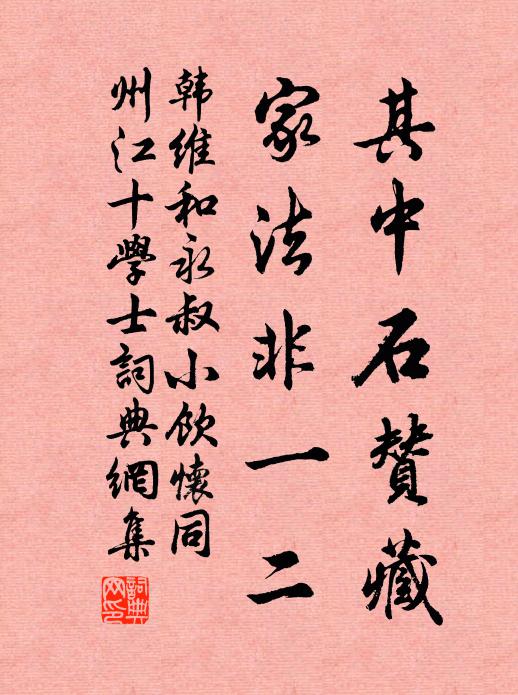 其中石賛藏
家法非一二
韩維和永叔小飲懷同
州江十學士詞典網集
詞典网印